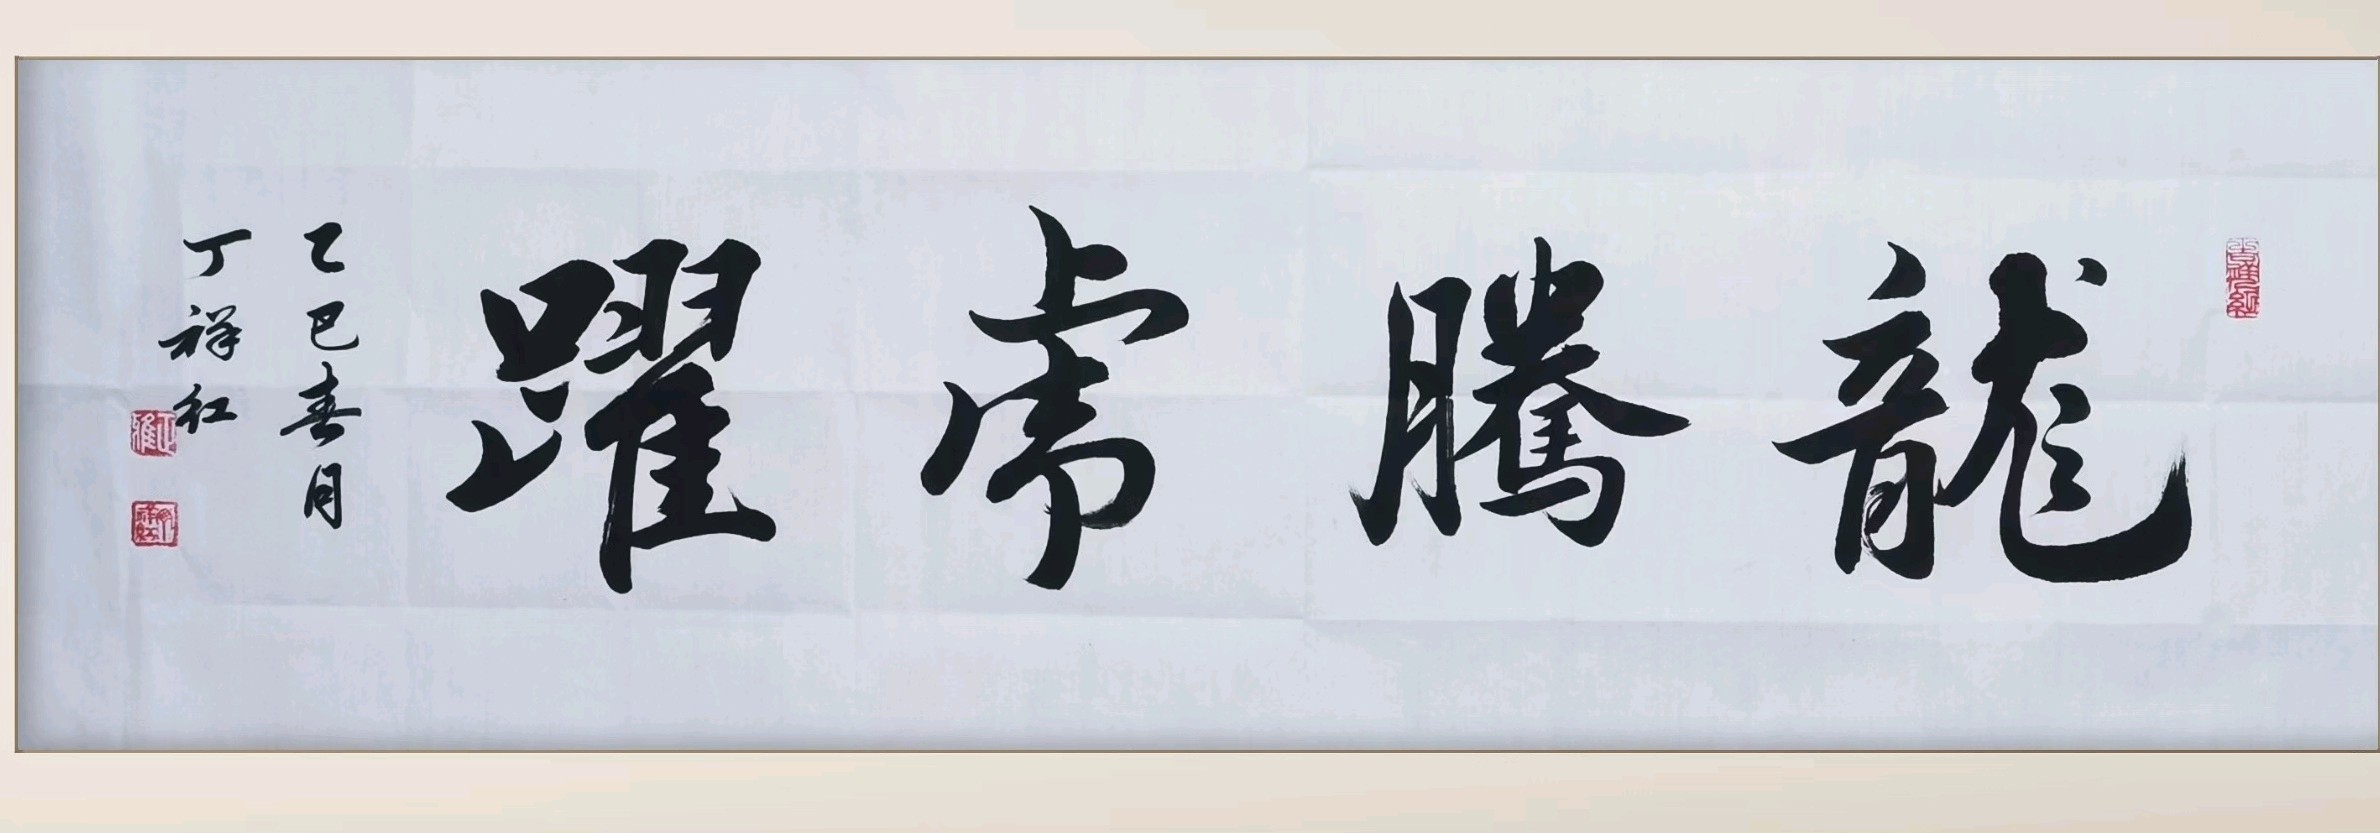 龍騰虎躍
乙巳春月
丁祥红